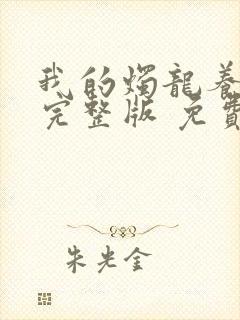 我的燭龍養
完整版 免費
朱光金